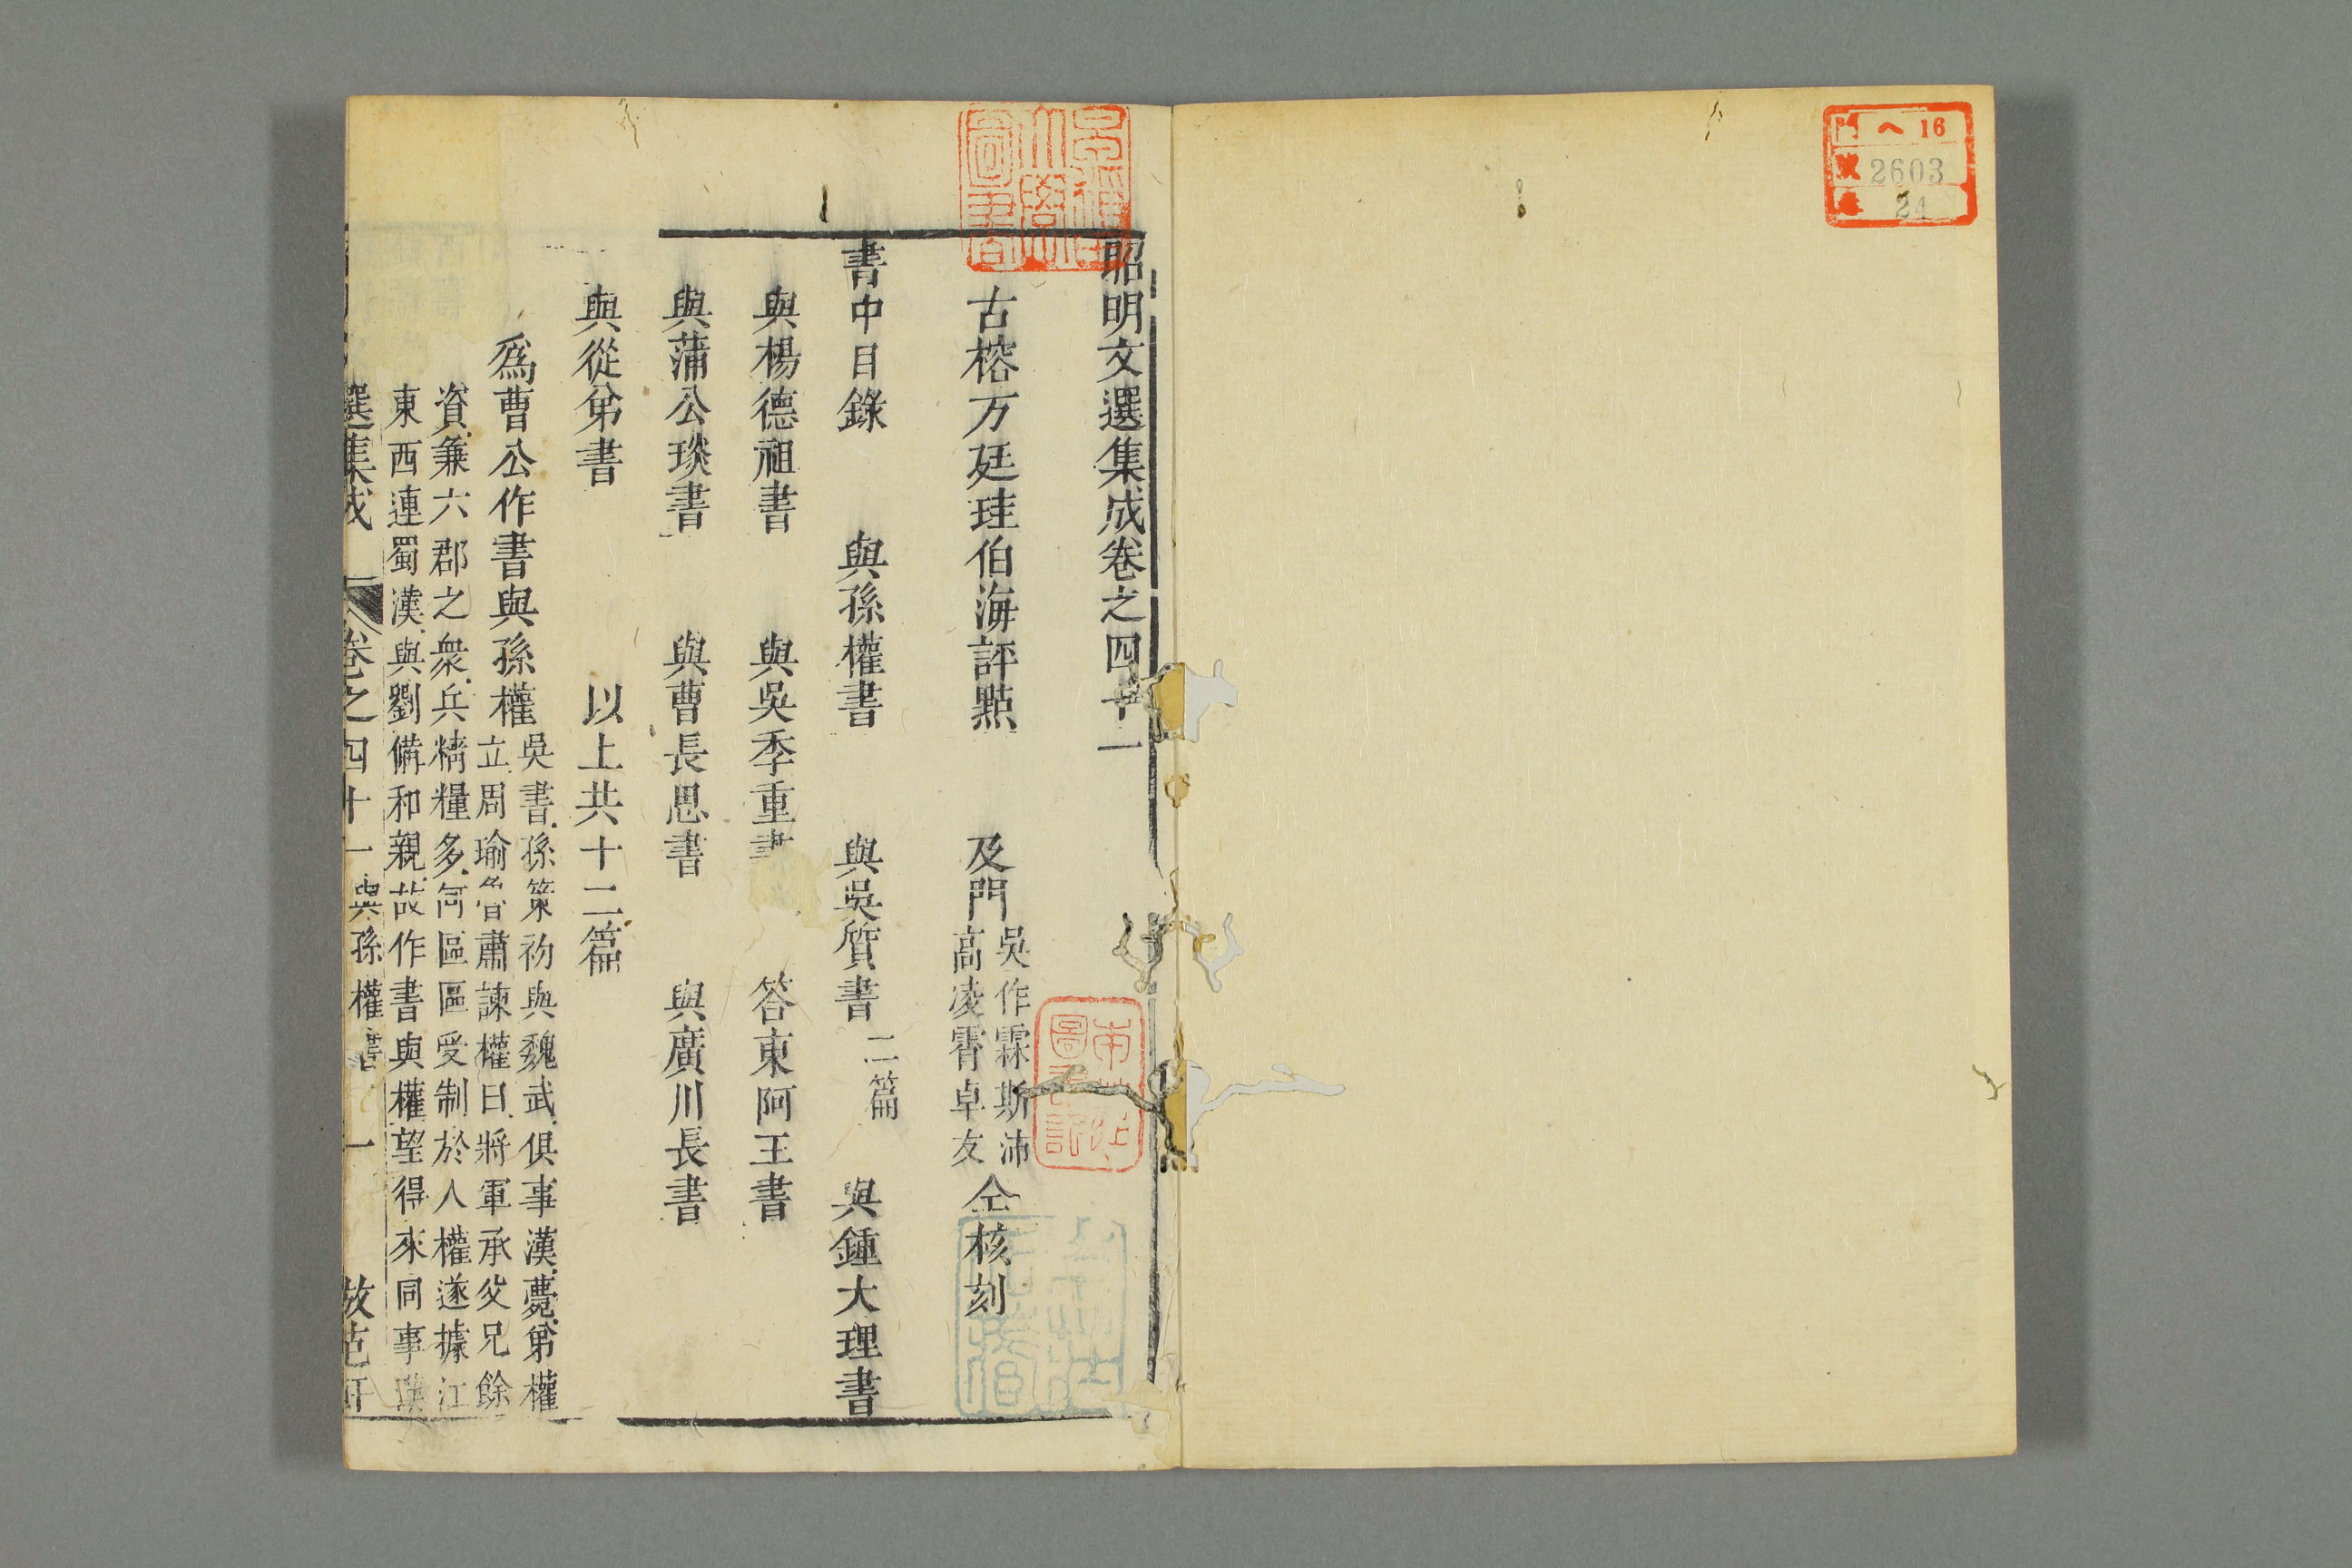 門 ヘ 16
號 2603
卷 24
昭明文選集成卷之四十一
古榕方廷珪伯海評點 及門
吳作霖斯沛
高凌霄卓友
仝核刻
書中目錄 與孫權書 與吳質書 二篇 與鍾大理書
與楊德祖書 與吳季重書 答東阿王書
與蒲公琰書 與曹長思書 與廣川長書
與從弟書 以上共十二篇
爲曹公作書與孫權
吳書孫策初與魏武俱事漢薨弟權
立周瑜魯肅諫權曰將軍承父兄餘
資兼六郡之衆兵精糧多何區區受制於人權遂據江
東西連蜀漢與劉備和親故作書與權望得來同事漢
選集成 卷之四十一 與孫權書 一 倣范軒